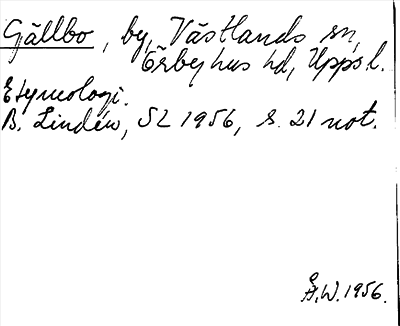 Gällbo, by, Västlands sn,
Örbyhus hd, Uppsl.
Etymologi.
B. Lindén, SL 1956, s. 21 not.
Å.W. 1956.